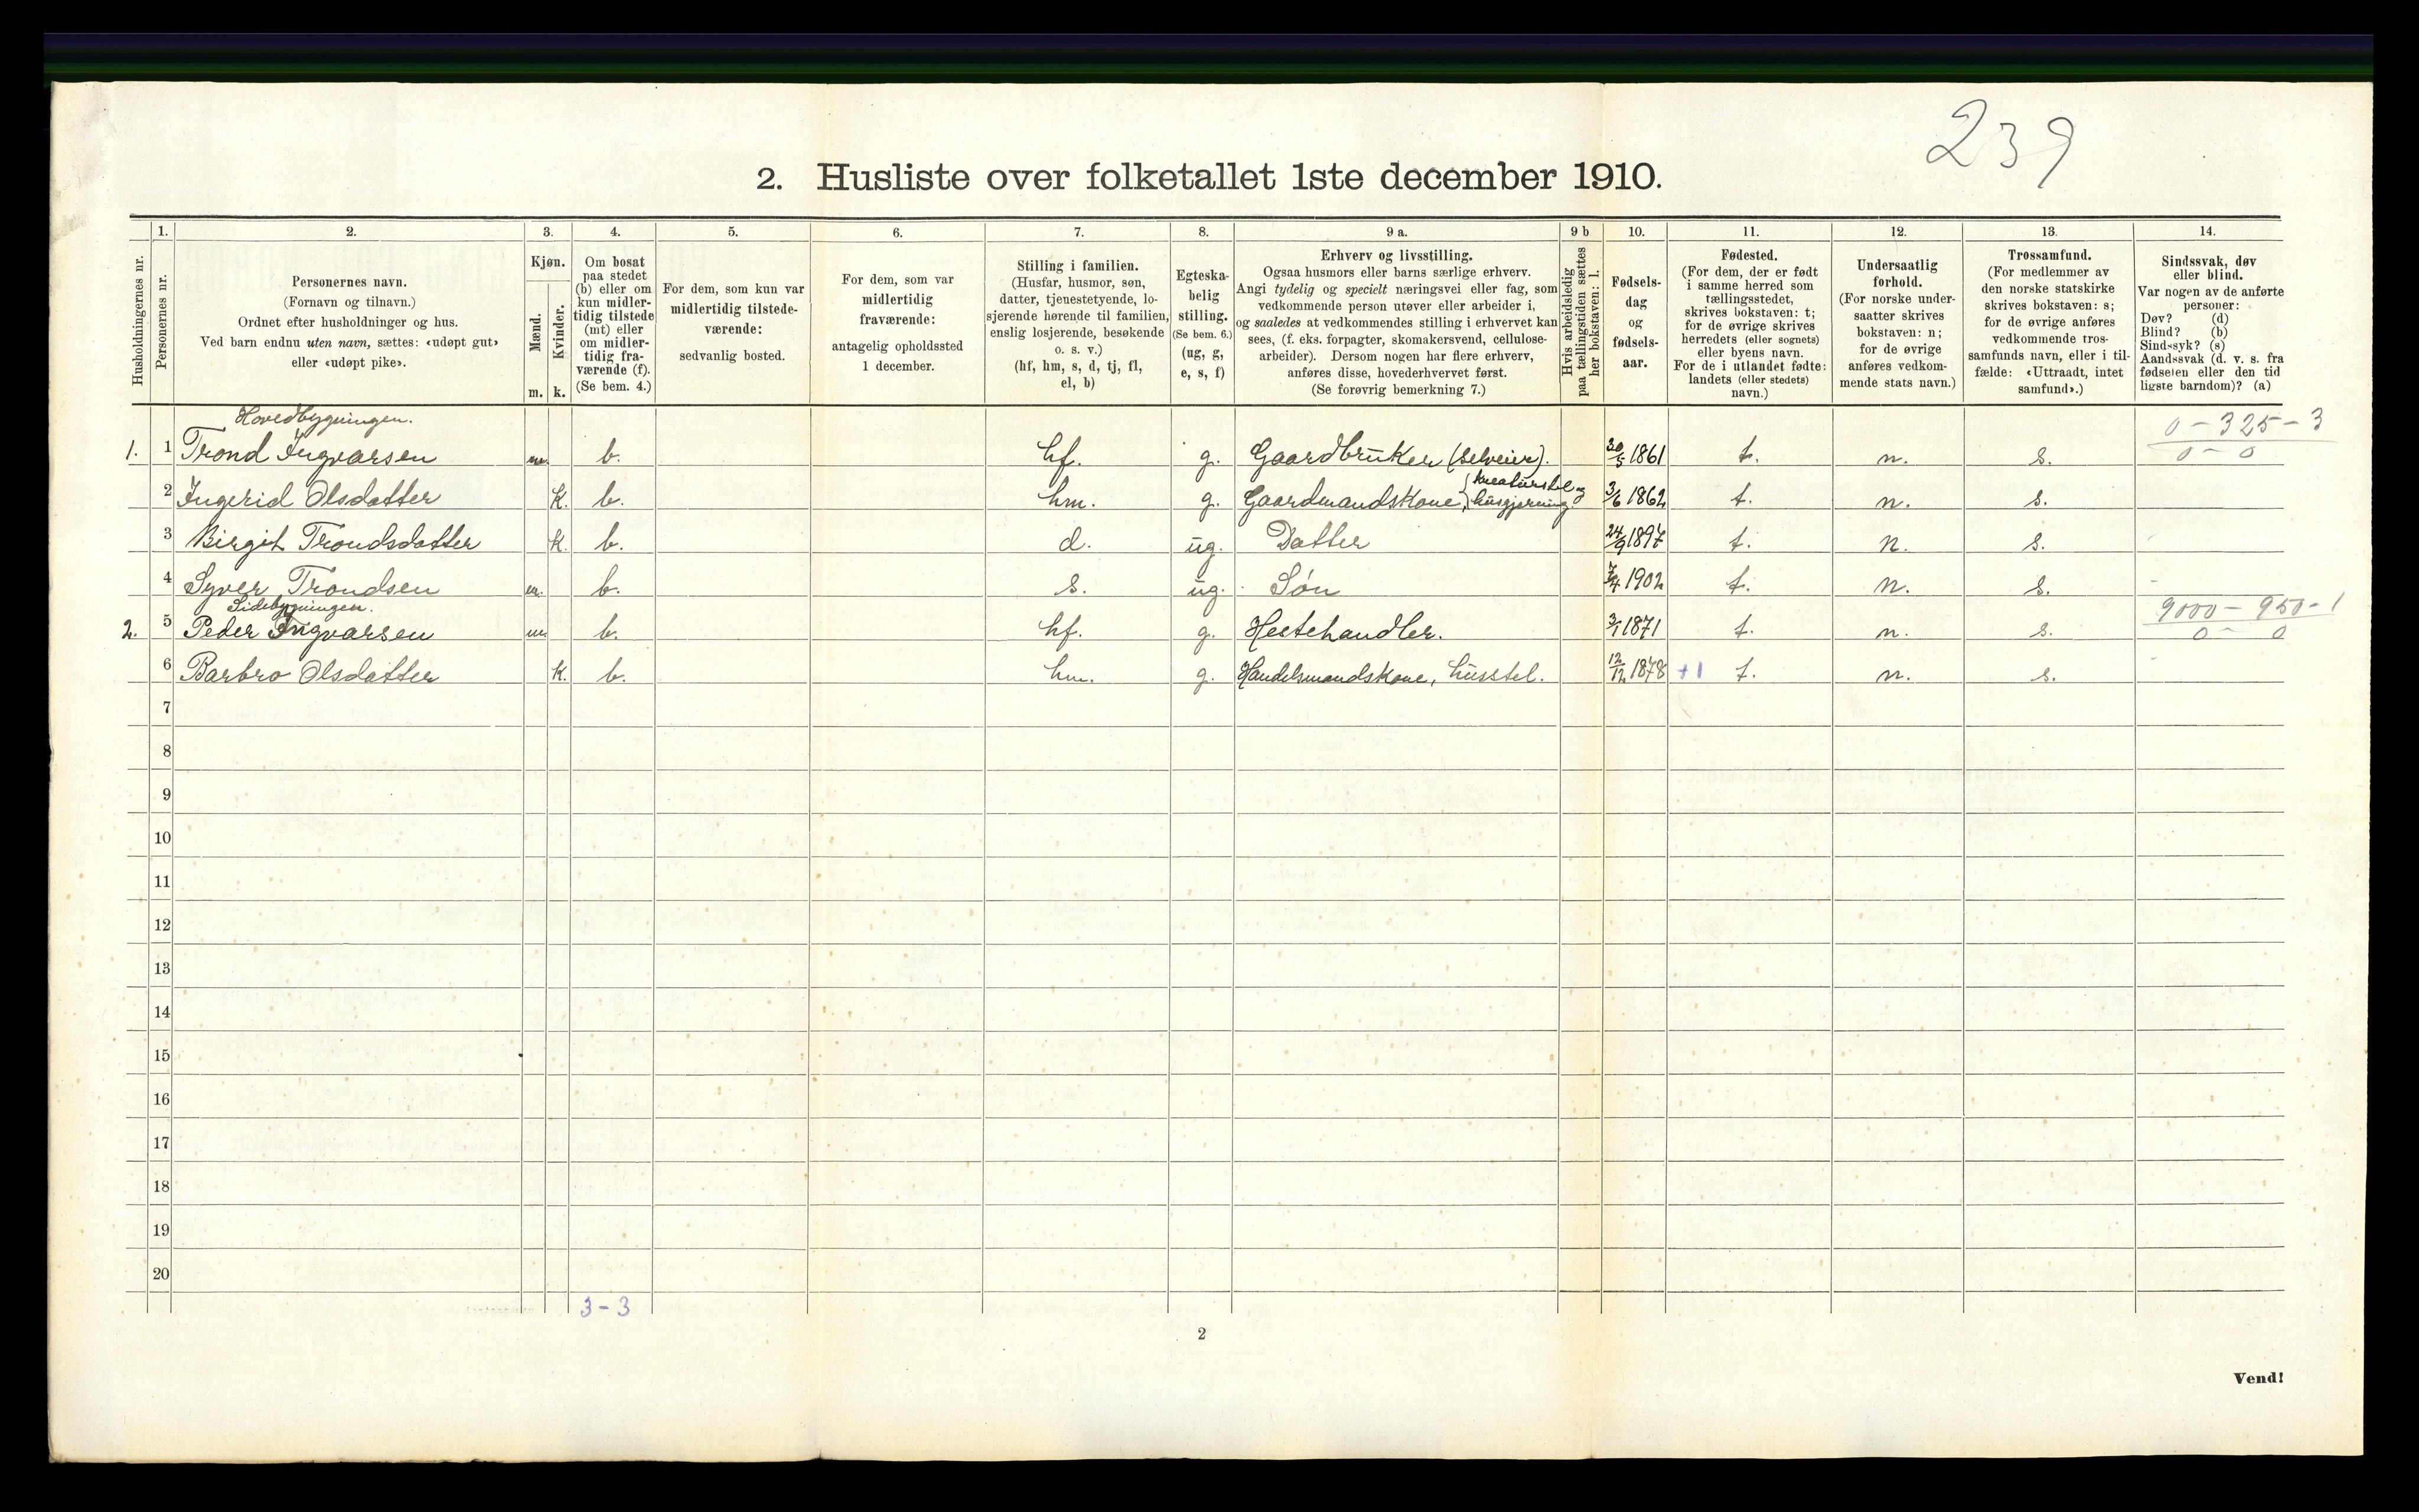 239
2. Husliste over folketallet 1ste december 1910.
1. 2. 3. 4. 5. 6. 7. 8. 9 a. 9 b 10. 11. 12. 13. 14.
Husholdningernes nr.
Personernes nr.
Personernes navn.
(Fornavn og tilnavn.)
Ordnet efter husholdninger og hus.
Ved barn endnu uten navn, sættes: «udøpt gut»
eller «udøpt pike».
Kjøn.
Mænd.
Kvinder.
m. k.
Om bosat
paa stedet
(b) eller om
kun midler-
tidig tilstede
(mt) eller
om midler-
tidig fra-
værende (f).
(Se bem. 4.)
For dem, som kun var
midlertidig tilstede-
værende:
sedvanlig bosted.
For dem, som var
midlertidig
fraværende:
antagelig opholdssted
1 december.
Stilling i familien.
(Husfar, husmor, søn,
datter, tjenestetyende, lo-
sjerende hørende til familien,
enslig losjerende, besøkende
o. s. v.)
(hf, hm, s, d, tj, fl,
el, b)
Egteska-
belig
stilling.
(Se bem. 6.)
(ug, g,
e, s, f)
Erhverv og livsstilling.
Ogsaa husmors eller barns særlige erhverv.
Angi tydelig og specielt næringsvei eller fag, som
vedkommende person utøver eller arbeider i,
og saaledes at vedkommendes stilling i erhvervet kan
sees, (f. eks. forpagter, skomakersvend, cellulose-
arbeider). Dersom nogen har flere erhverv,
anføres disse, hovederhvervet først.
(Se forøvrig bemerkning 7.)
Hvis arbeidsledig
paa tællingstiden sættes
her bokstaven: l.
Fødsels-
dag
og
fødsels-
aar.
Fødested.
(For dem, der er født
i samme herred som
tællingsstedet,
skrives bokstaven: t;
for de øvrige skrives
herredets (eller sognets)
eller byens navn.
For de i utlandet fødte:
landets (eller stedets)
navn.)
Undersaatlig
forhold.
(For norske under-
saatter skrives
bokstaven: n;
for de øvrige
anføres vedkom-
mende stats navn.)
Trossamfund.
(For medlemmer av
den norske statskirke
skrives bokstaven: s;
for de øvrige anføres
vedkommende tros-
samfunds navn, eller i til-
fælde: «Uttraadt, intet
samfund».)
Sindssvak, døv
eller blind.
Var nogen av de anførte
personer:
Døv? (d)
Blind? (b)
Sindssyk? (s)
Aandssvak (d. v. s. fra
fødselen eller den tid
ligste barndom)? (a)
Hovedbygningen. 0 - 325 - 3
1. 1 Trond Ingvarsen m. b. hf. g. Gaardbruker (selveier). 30/5 1861 t. n. s. 0 - 0
2 Ingerid Olsdatter K. b. hm. g. Gaardmandskone, kreaturstel og husgjerning 3/6 1862 t. n. s.
3 Birgit Trondsdatter K. b. d. ug. Datter 24/9 1897 t. n. s.
4 Syver Trondsen m. b. s. ug. Søn 7/4 1902 t. n. s.
Sidebygningen. 9000 - 950 - 1
2. 5 Peder Ingvarsen m b. hf. g. Hestehandler. 3/1 1871 t. n. s. 0 - 0
6 Barbro Olsdatter K. b. hm. g. Handelsmandskone, husstel. 12/12 1878 +1 t. n. s.
7
8
9
10
11
12
13
14
15
16
17
18
19
20
3 - 3
2
Vend!